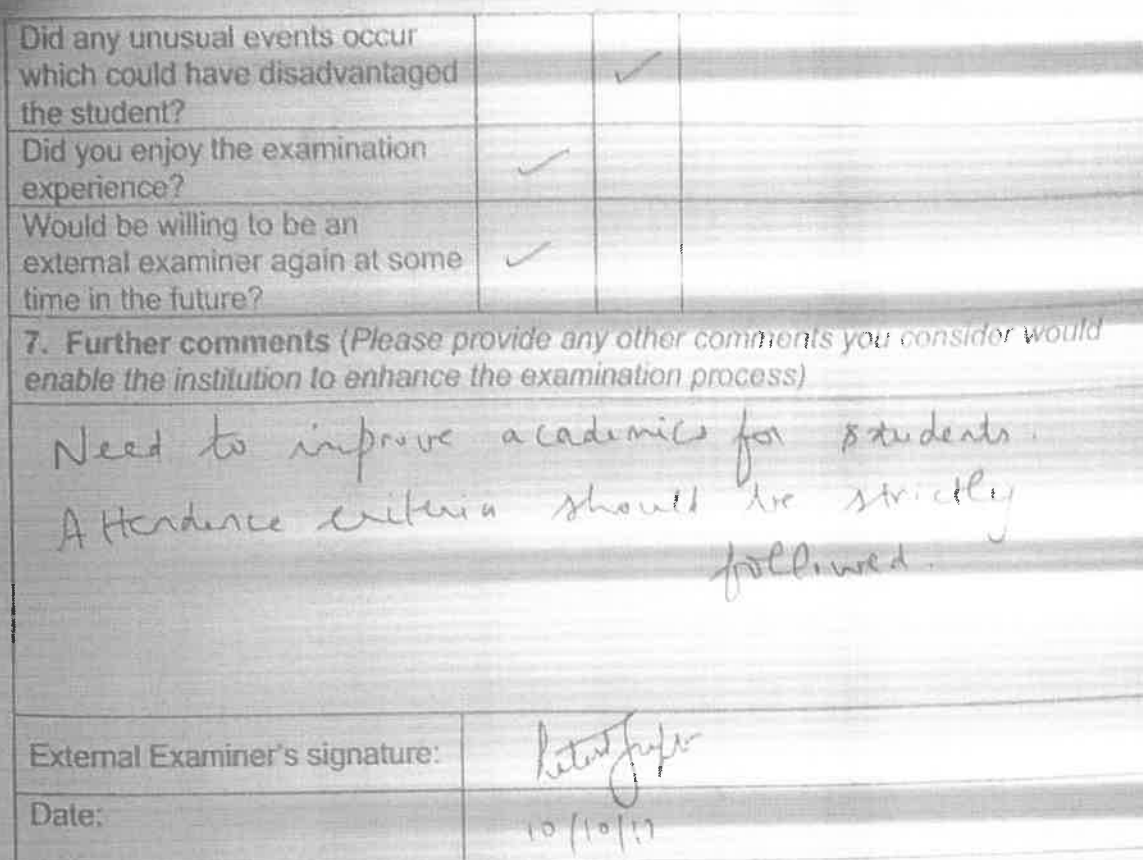 Did any unusual events occur
which could have disadvantaged
the student?
✓
Did you enjoy the examination
experience?
✓
Would be willing to be an
external examiner again at some
time in the future?
✓
7. Further comments (Please provide any other comments you consider would
enable the institution to enhance the examination process)
Need to improve academics for students.
Attendence criteria should be strictly
followed.
External Examiner's signature:
Date:
10/10/